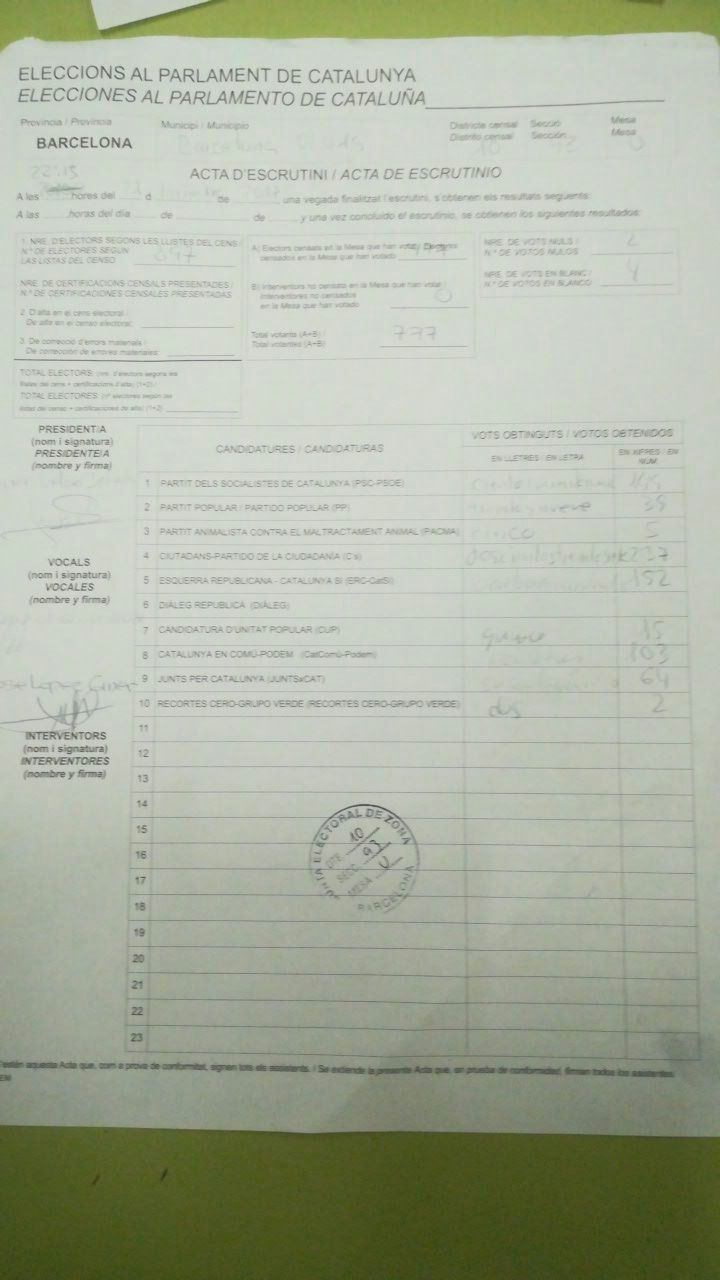 ELECCIONS AL PARLAMENT DE CATALUNYA
ELECCIONES AL PARLAMENTO DE CATALUÑA
Provincia / Provincia Municipi / Municipio Districte censal Secció Mesa
Distrito censal Sección Mesa
BARCELONA Barcelona
22:15
ACTA D'ESCRUTINI / ACTA DE ESCRUTINIO
A les hores del d de una vegada finalitzat l'escrutini, s'obtenen els resultats següents:
A las horas del día de de y una vez concluido el escrutinio, se obtienen los siguientes resultados:
1. NRE. D'ELECTORS SEGONS LES LLISTES DEL CENS /
N.º DE ELECTORES SEGÚN
LAS LISTAS DEL CENSO
NRE. DE CERTIFICACIONS CENSALS PRESENTADES /
N.º DE CERTIFICACIONES CENSALES PRESENTADAS
2. D'alta en el cens electoral /
De alta en el censo electoral:
3. De correcció d'errors materials /
De corrección de errores materiales:
TOTAL ELECTORS: (nre. d'electors segons les
llistes del cens + certificacions d'alta) (1+2) /
TOTAL ELECTORES: (nº electores según las
listas del censo + certificaciones de alta) (1+2)
A) Electors censats en la Mesa que han votat / Electores
censados en la Mesa que han votado
B) Interventors no censats en la Mesa que han votat /
Interventores no censados
en la Mesa que han votado 0
Total votants (A+B) /
Total votantes (A+B) 777
NRE. DE VOTS NULS /
N.º DE VOTOS NULOS 2
NRE. DE VOTS EN BLANC /
N.º DE VOTOS EN BLANCO 4
PRESIDENT/A
(nom i signatura)
PRESIDENTE/A
(nombre y firma)
VOCALS
(nom i signatura)
VOCALES
(nombre y firma)
INTERVENTORS
(nom i signatura)
INTERVENTORES
(nombre y firma)
CANDIDATURES / CANDIDATURAS VOTS OBTINGUTS / VOTOS OBTENIDOS
EN LLETRES / EN LETRA EN XIFRES / EN NÚM.
1 PARTIT DELS SOCIALISTES DE CATALUNYA (PSC-PSOE)
2 PARTIT POPULAR / PARTIDO POPULAR (PP) 39
3 PARTIT ANIMALISTA CONTRA EL MALTRACTAMENT ANIMAL (PACMA) cinco 5
4 CIUTADANS-PARTIDO DE LA CIUDADANÍA (C's) 237
5 ESQUERRA REPUBLICANA - CATALUNYA SÍ (ERC-CatSí) 152
6 DIÀLEG REPUBLICÀ (DIÀLEG)
7 CANDIDATURA D'UNITAT POPULAR (CUP) quince 15
8 CATALUNYA EN COMÚ-PODEM (CatComú-Podem) 103
9 JUNTS PER CATALUNYA (JUNTSxCAT) 64
10 RECORTES CERO-GRUPO VERDE (RECORTES CERO-GRUPO VERDE) dos 2
11
12
13
14
15
16
17
18
19
20
21
22
23
JUNTA ELECTORAL DE ZONA
DTE. 10
SECC. 93
MESA U
BARCELONA
aquesta Acta que, com a prova de conformitat, signen tots els assistents. / Se extiende la presente Acta que, en prueba de conformidad, firman todos los asistentes.